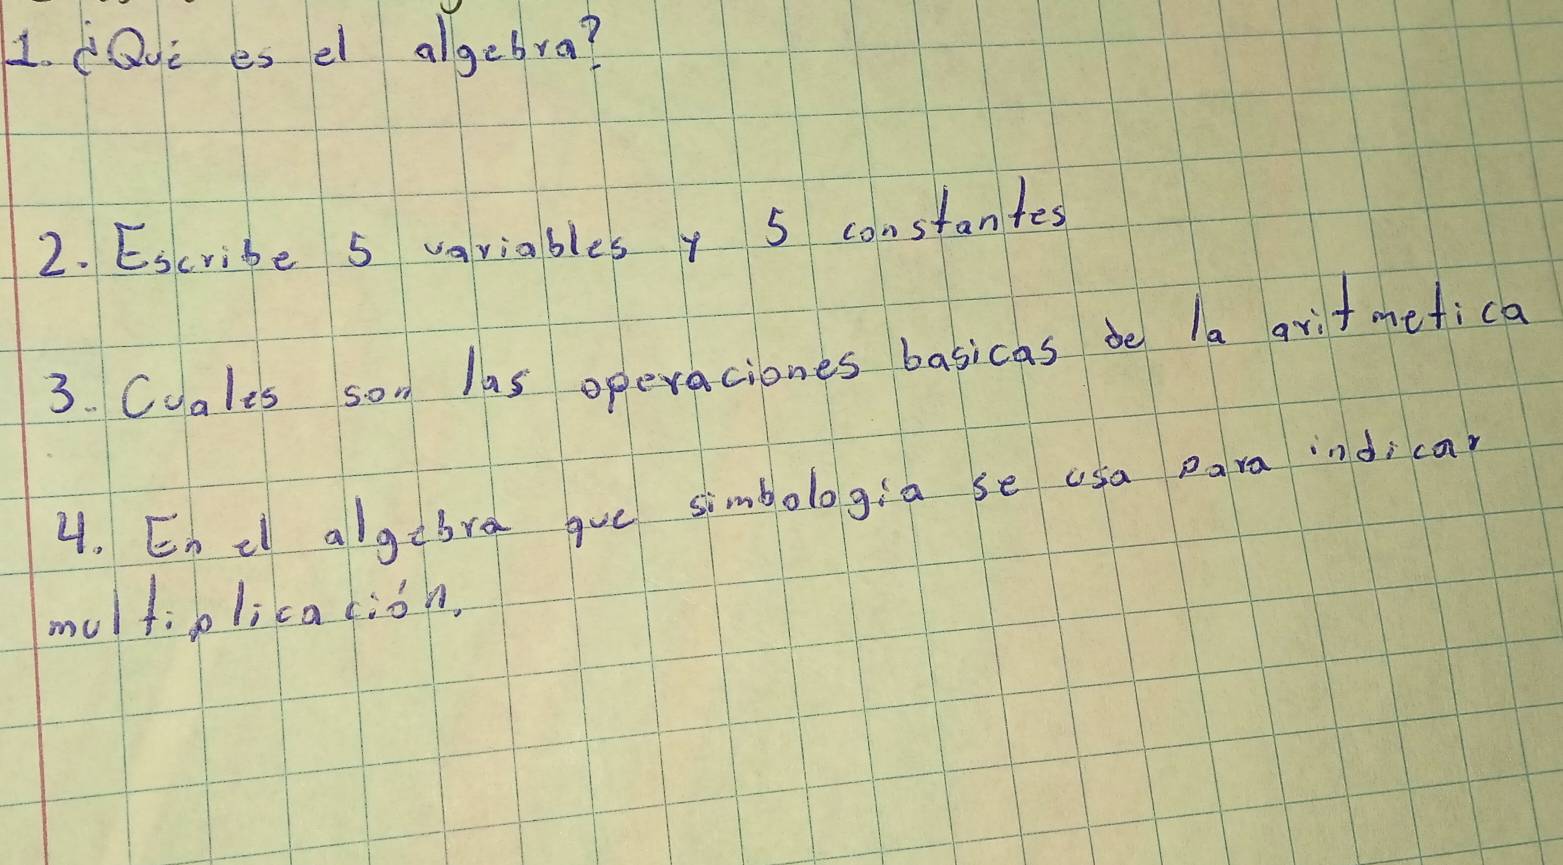 1. ¿Qué es el algebra?
2. Escribe 5 variables y 5 constantes
3. Cuales son las operaciones basicas de la aritmetica
4. En el algebra que simbologia se usa para indicar
multiplicación.